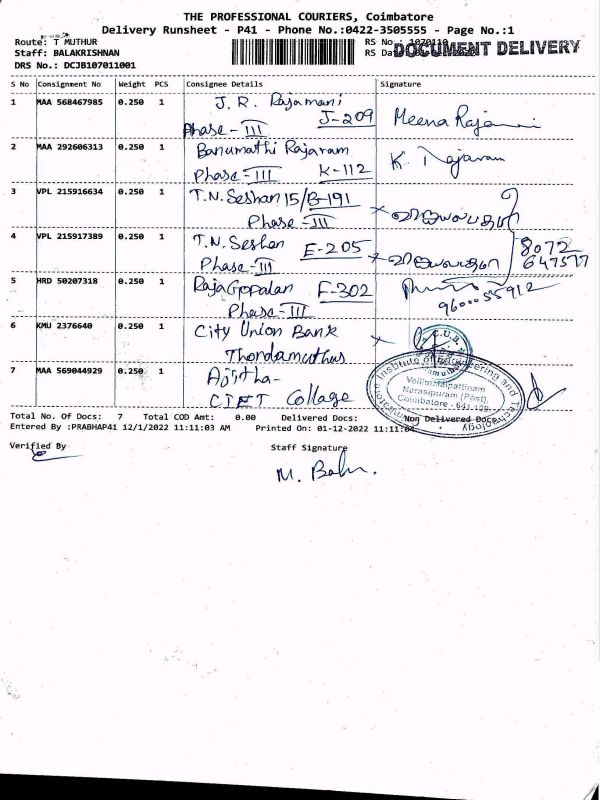 THE PROFESSIONAL COURIERS, Coimbatore
Delivery Runsheet - P41 - Phone No.:0422-3505555 - Page No.:1
Route: T MUTHUR
RS No.: 1070110
Staff: BALAKRISHNAN
DOCUMENT DELIVERY
DRS No.: DCJB107011001
S No Consignment No Weight PCS Consignee Details Signature
1 MAA 568467985 0.250 1 J.R. Rajamani J-209
Phase-III
Meena
2 MAA 292606313 0.250 1 Banumathi Rajaram
Phase-III K-112
K. Rajaram
3 VPL 215916634 0.250 1 T.N. Seshan 15/B-191
Phase-III
4 VPL 215917389 0.250 1 T.N. Seshan E-205
Phase-III
8072
647577
5 HRD 50207318 0.250 1 RajaGopalan F-302
Phase-III
9600055912
6 KMU 2376640 0.250 1 City Union Bank
C.U.B.
7 MAA 569044929 0.250 1 Ajitha-
CIET Collage
Institute of Engineering and Technology
Narasipuram (Post),
Coimbatore - 641 109
Total No. Of Docs: 7 Total COD Amt: 0.00 Delivered Docs: Non Delivered Docs
Entered By :PRABHAP41 12/1/2022 11:11:03 AM Printed On: 01-12-2022 11:11:04
Verified By Staff Signature